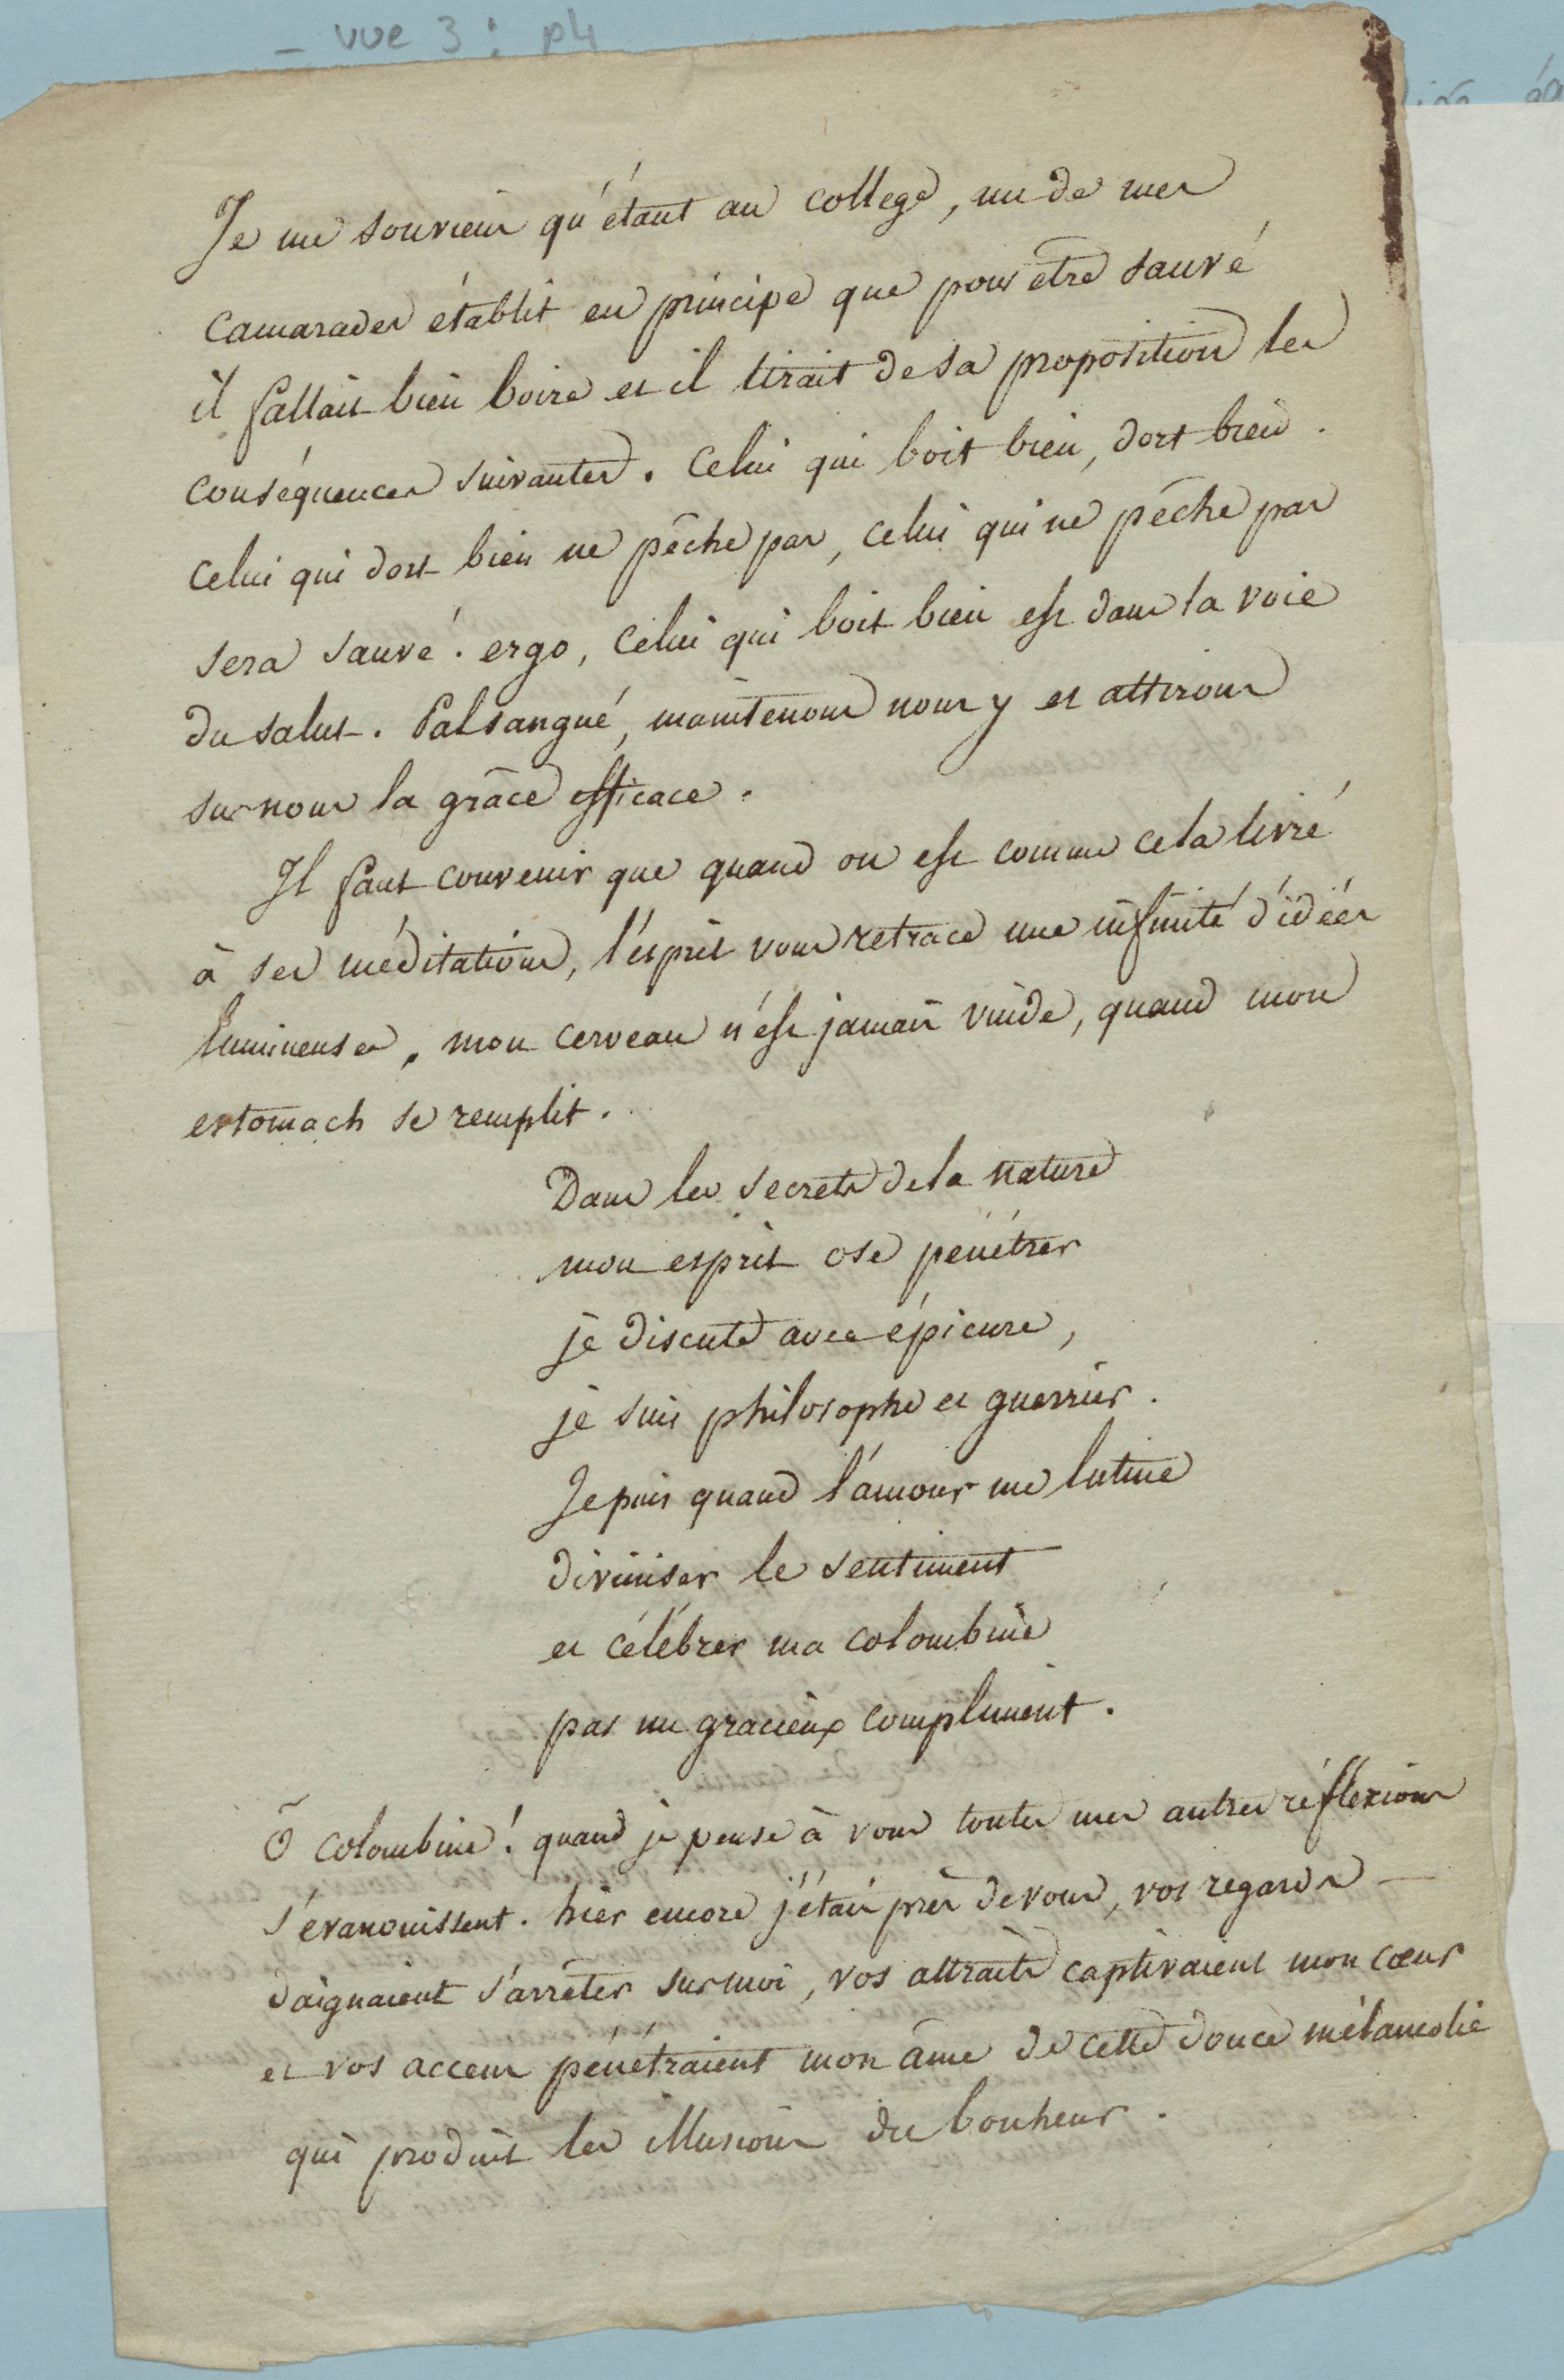 - vue 3 : p4
Je me souviens qu'étant au college, un de mes
camarades établit en principe que pour etre sauvé
il fallait bien boire et il tirait de sa proposition les
conséquences suivantes. Celui qui boit bien, dort bien.
Celui qui dort bien ne pêche pas, celui qui ne pêche pas
sera sauvé. ergo, Celui qui boit bien est dans la voie
du salut. Palsangué, maintenons nous y et attirons
sur nous la grâce efficace.
Il faut convenir que quand on est comme cela livré
à ses méditations, l'esprit vous retrace une infinité d'idées
lumineuses, mon cerveau n'est jamais vuide, quand mon
estomach se remplit.
Dans les secrets de la nature
mon esprit ose pénétrer
je discute avec épicure,
je suis philosophe et guerrier.
Je puis quand l'amour me lutine
diviniser le sentiment
et célébrer ma colombine
par un gracieux compliment.
Ô colombine! quand je pense à vous toutes mes autres réflexions
s'évanouissent. hier encore j'étais près de vous, vos regards
daignaient s'arrêter sur moi, vos attraits captivaient mon cœur
et vos accens pénétraient mon âme de cette douce mélancolie
qui produit les illusions du bonheur.